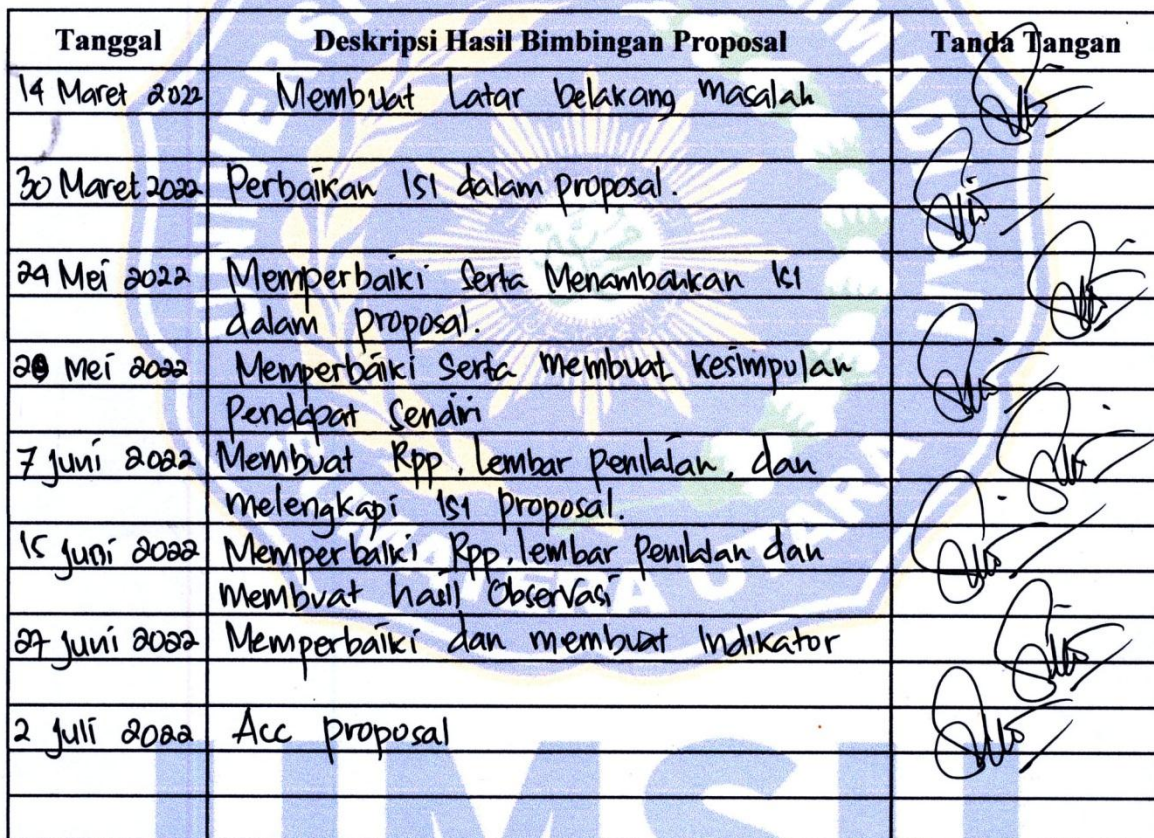 Tanggal Deskripsi Hasil Bimbingan Proposal Tanda Tangan
14 Maret 2022 Membuat Latar belakang masalah
30 Maret 2022 Perbaikan Isi dalam proposal.
24 Mei 2022 Memperbaiki Serta Menambahkan Isi
dalam proposal.
Mei 2022 Memperbaiki Serta membuat Kesimpulan
Pendapat Sendiri
7 Juni 2022 Membuat Rpp, lembar penilaian, dan
melengkapi Isi proposal.
15 Juni 2022 Memperbaiki Rpp, lembar penilaian dan
membuat hasil Observasi
27 Juni 2022 Memperbaiki dan membuat Indikator
2 Juli 2022 Acc proposal
UMSU